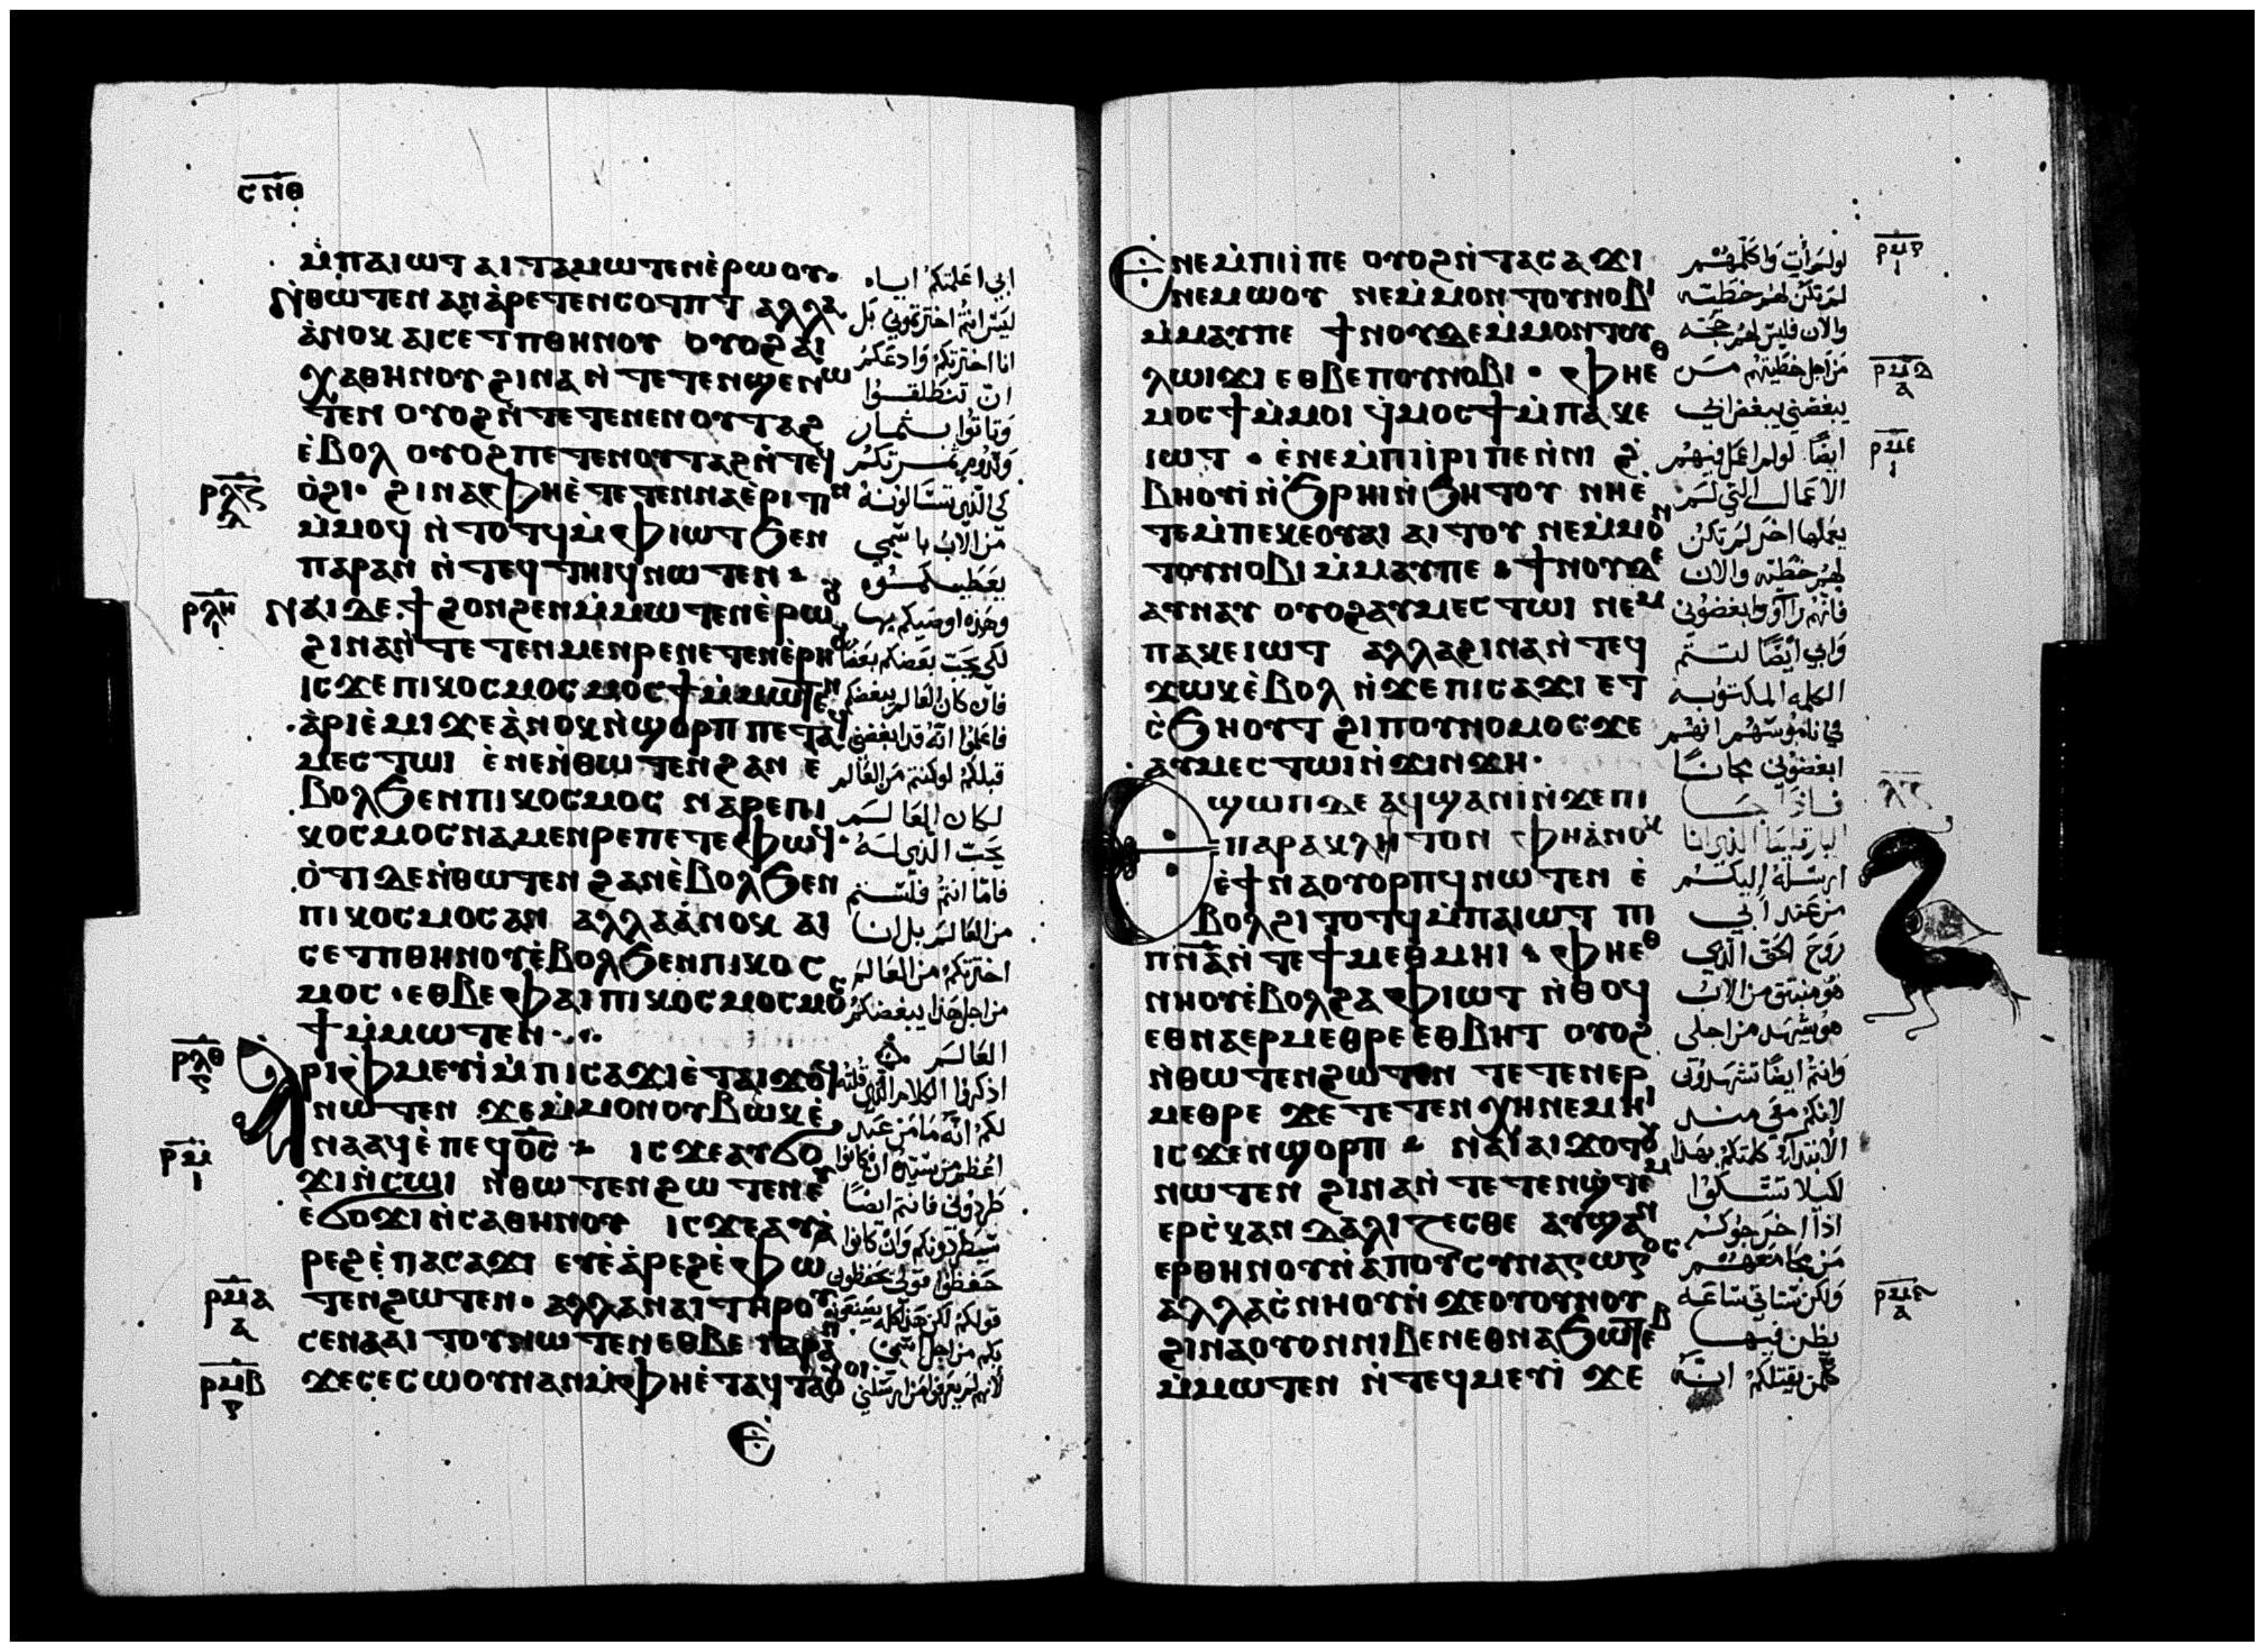 ⲥⲛⲑ
ⲙ̀ⲡⲁⲓⲱⲧ ⲁⲓⲧⲁⲙⲱⲧⲉⲛ ⲉ̀ⲣⲱⲟⲩ.
ⲛ̀ⲑⲱⲧⲉⲛ ⲁⲛ ⲁ̀ⲣⲉⲧⲉⲛⲥⲟⲧⲡⲧ ⲁⲗⲗⲁ
ⲁ̀ⲛⲟⲕ ⲁⲓⲥⲉⲧⲡⲑⲏⲛⲟⲩ ⲟⲩⲟϩ ⲁⲓ
ⲭⲁⲑⲏⲛⲟⲩ ϩⲓⲛⲁ ⲛ̀ⲧⲉⲧⲉⲛϣⲉⲛⲱ
ⲧⲉⲛ ⲟⲩⲟϩ ⲛ̀ⲧⲉⲧⲉⲛⲉⲛⲟⲩⲧⲁϩ
ⲉ̀ⲃⲟⲗ ⲟⲩⲟϩ ⲡⲉⲧⲉⲛⲟⲩⲧⲁϩ ⲛ̀ⲧⲉϥ
ⲟ̀ϩⲓ. ϩⲓⲛⲁ ⲫⲏⲉ̀ⲧⲉⲧⲉⲛⲛⲁⲉ̀ⲣⲓⲧⲓⲛ
ⲙ̀ⲙⲟϥ ⲛ̀ⲧⲟⲧϥ ⲙ̀ⲫⲓⲱⲧ ϧⲉⲛ
ⲡⲁⲣⲁⲛ ⲛ̀ⲧⲉϥⲧⲏⲓϥ ⲛⲱⲧⲉⲛ
ⲛⲁⲓ ⲇⲉ ϯϩⲟⲛϩⲉⲛ ⲙ̀ⲙⲱⲧⲉⲛ ⲉ̀ⲣⲱⲟⲩ
ϩⲓⲛⲁ ⲛ̀ⲧⲉⲧⲉⲛⲙⲉⲛⲣⲉ ⲛⲉⲧⲉⲛⲉ̀ⲣⲏⲟⲩ
ⲓⲥϫⲉ ⲡⲓⲕⲟⲥⲙⲟⲥ ⲙⲟⲥϯ ⲙ̀ⲙⲱⲧⲉⲛ
ⲁ̀ⲣⲓⲉ̀ⲙⲓ ϫⲉ ⲁ̀ⲛⲟⲕ ⲛ̀ϣⲟⲣⲡ ⲡⲉⲧⲁϥ
ⲙⲉⲥⲧⲱⲓ ⲉ̀ⲛⲉ ⲛ̀ⲑⲱⲧⲉⲛ ϩⲁⲛ ⲉ̀
ⲃⲟⲗ ϧⲉⲛ ⲡⲓⲕⲟⲥⲙⲟⲥ ⲛⲁⲣⲉ ⲡⲓ
ⲕⲟⲥⲙⲟⲥ ⲛⲁⲙⲉⲛⲣⲉ ⲡⲉⲧⲉ ⲫⲱϥ.
ⲟ̀ⲧⲓ ⲇⲉ ⲛ̀ⲑⲱⲧⲉⲛ ϩⲁⲛ ⲉ̀ⲃⲟⲗ ϧⲉⲛ
ⲡⲓⲕⲟⲥⲙⲟⲥ ⲁⲛ ⲁⲗⲗⲁ ⲁ̀ⲛⲟⲕ ⲁⲓ
ⲥⲉⲧⲡⲑⲏⲛⲟⲩ ⲉ̀ⲃⲟⲗ ϧⲉⲛ ⲡⲓⲕⲟⲥ
ⲙⲟⲥ. ⲉⲑⲃⲉ ⲫⲁⲓ ⲡⲓⲕⲟⲥⲙⲟⲥ ⲙⲟⲥ
ϯ ⲙ̀ⲙⲱⲧⲉⲛ
ⲁⲣⲓⲫⲙⲉⲩⲓ̀ ⲙ̀ⲡⲓⲥⲁϫⲓ ⲉ̀ⲧⲁⲓϫⲟϥ
ⲛⲱⲧⲉⲛ ϫⲉ ⲙ̀ⲙⲟⲛ ⲟⲩⲃⲱⲕ ⲉ̀
ⲛⲁⲁϥ ⲉ̀ⲡⲉϥⲟ̅ⲥ̅ ⲓⲥϫⲉ ⲁⲩϭⲟ
ϫⲓ ⲛ̀ⲥⲱⲓ ⲛ̀ⲑⲱⲧⲉⲛ ϩⲱⲧⲉⲛ ⲉⲩ
ⲉϭⲟϫⲓ ⲛ̀ⲥⲁⲑⲏⲛⲟⲩ ⲓⲥϫⲉ ⲁⲩⲁ̀
ⲣⲉϩ ⲉ̀ⲡⲁⲥⲁϫⲓ ⲉⲩⲉ̀ⲁ̀ⲣⲉϩ ⲉ̀ⲫⲱ
ⲧⲉⲛ ϩⲱⲧⲉⲛ. ⲁⲗⲗⲁ ⲛⲁⲓ ⲧⲏⲣⲟⲩ
ⲥⲉⲛⲁⲁⲓⲧⲟⲩ ⲛⲱⲧⲉⲛ ⲉⲑⲃⲉ ⲡⲁⲣⲁⲛ
ϫⲉ ⲥⲉⲥⲱⲟⲩⲛ ⲁⲛ ⲙ̀ⲫⲏⲉ̀ⲧⲁϥⲧⲁⲟⲩⲟⲓ
ⲉ
ⲣⲗⲍ
ⲣⲗⲏ
ⲣⲗⲑ
ⲣⲙ
ⲣⲙⲁ
ⲣⲙⲃ
ابي اعلمتكم اياه
ليس انتم اخترتموني بل
انا اخترتكم وادعكم
ان تنطلقوا
وتاتوا بثمار
وتدوم ثمرتكم
كي الذي تسالونه
من الاب باسمي
يعطيكموه
وهذه اوصيكم بها
لكي يحب بعضكم بعضا
فان كان العالم يبغضكم
فاعلموا انه قد ابغضني
قبلكم لو كنتم من العالم
لكان العالم
يحب الذي له
فاما انتم فلستم
من العالم بل انا
اخترتكم من العالم
من اجل هذا يبغضكم
العالم
اذكروا الكلام الذي قلته
لكم انه ما من عبد
اعظم من سيده ان كانوا
طردوني فانتم ايضا
سيطردونكم وان كانوا
حفظوا قولي يحفظون
ⲉⲛⲉ ⲙ̀ⲡⲓⲓ̀ ⲡⲉ ⲟⲩⲟϩ ⲛ̀ⲧⲁⲥⲁϫⲓ
ⲛⲉⲙⲱⲟⲩ ⲛⲉ ⲙ̀ⲙⲟⲛⲧⲟⲩ ⲛⲟⲃⲓ
ⲙ̀ⲙⲁⲩ ⲡⲉ ϯⲛⲟⲩ ⲇⲉ ⲙ̀ⲙⲟⲛⲧⲟⲩ
ⲗⲱⲓϫⲓ ⲉⲑⲃⲉ ⲡⲟⲩⲛⲟⲃⲓ. ⲫⲏⲉⲑ
ⲙⲟⲥϯ ⲙ̀ⲙⲟⲓ ϥ̀ⲙⲟⲥϯ ⲙ̀ⲡⲁⲕⲉ
ⲓⲱⲧ. ⲉ̀ⲛⲉ ⲙ̀ⲡⲓⲓ̀ⲣⲓ ⲡⲉ ⲛ̀ⲛⲓϩ
ⲃⲏⲟⲩⲓ̀ ⲛ̀ϧⲣⲏⲓ ⲛ̀ϧⲏⲧⲟⲩ ⲛⲏⲉ̀
ⲧⲉ ⲙ̀ⲡⲉ ⲕⲉⲟⲩⲁⲓ ⲁⲓⲧⲟⲩ ⲛⲉ ⲙ̀ⲙⲟⲛ
ⲧⲟⲩ ⲛⲟⲃⲓ ⲙ̀ⲙⲁⲩ ⲡⲉ ϯⲛⲟⲩ ⲇⲉ
ⲁⲩⲛⲁⲩ ⲟⲩⲟϩ ⲁⲩⲙⲉⲥⲧⲱⲓ ⲛⲉⲙ
ⲡⲁⲕⲉⲓⲱⲧ ⲁⲗⲗⲁ ϩⲓⲛⲁ ⲛ̀ⲧⲉϥ
ϫⲱⲕ ⲉ̀ⲃⲟⲗ ⲛ̀ϫⲉ ⲡⲓⲥⲁϫⲓ ⲉⲧ
ⲥ̀ϧⲏⲟⲩⲧ ϩⲓ ⲡⲟⲩⲛⲟⲙⲟⲥ ϫⲉ
ⲁⲩⲙⲉⲥⲧⲱⲓ ⲛ̀ϫⲓⲛϫⲏ.
ⲉϣⲱⲡ ⲇⲉ ⲁϥϣⲁⲛⲓ̀ ⲛ̀ϫⲉ ⲡⲓ
ⲡⲁⲣⲁⲕⲗⲏⲧⲟⲛ ⲫⲏ ⲁ̀ⲛⲟⲕ
ⲉ̀ϯⲛⲁⲟⲩⲟⲣⲡϥ ⲛⲱⲧⲉⲛ ⲉ̀
ⲃⲟⲗ ϩⲓⲧⲟⲧϥ ⲙ̀ⲡⲁⲓⲱⲧ ⲡⲓ
ⲡ̅ⲛ̅ⲁ̅ ⲛ̀ⲧⲉ ϯⲙⲉⲑⲙⲏⲓ ⲫⲏⲉⲑ
ⲛⲏⲟⲩ ⲉ̀ⲃⲟⲗ ϩⲁ ⲫⲓⲱⲧ ⲛ̀ⲑⲟϥ
ⲉⲑⲛⲁⲉⲣⲙⲉⲑⲣⲉ ⲉⲑⲃⲏⲧ ⲟⲩⲟϩ
ⲛ̀ⲑⲱⲧⲉⲛ ϩⲱⲧⲉⲛ ⲧⲉⲧⲉⲛⲉⲣ
ⲙⲉⲑⲣⲉ ϫⲉ ⲧⲉⲧⲉⲛⲭⲏ ⲛⲉⲙⲏⲓ
ⲓⲥϫⲉⲛ ϣⲟⲣⲡ ⲛⲁⲓ ⲁⲓϫⲟⲧⲟⲩ
ⲛⲱⲧⲉⲛ ϩⲓⲛⲁ ⲛ̀ⲧⲉⲧⲉⲛϣ̀ⲧⲉⲙ
ⲉⲣⲥ̀ⲕⲁⲛⲇⲁⲗⲓⲍⲉⲥⲑⲉ ⲁⲩϣⲁⲛ
ⲉⲣⲑⲏⲛⲟⲩ ⲛ̀ⲁⲡⲟⲥⲩⲛⲁⲅⲱⲅⲟⲥ
ⲁⲗⲗⲁ ⲥ̀ⲛⲏⲟⲩ ⲛ̀ϫⲉ ⲟⲩⲟⲩⲛⲟⲩ
ϩⲓⲛⲁ ⲟⲩⲟⲛ ⲛⲓⲃⲉⲛ ⲉⲑⲛⲁϧⲱⲧⲉⲃ
ⲙ̀ⲙⲱⲧⲉⲛ ⲛ̀ⲧⲉϥⲙⲉⲩⲓ̀ ϫⲉ
لو لم ات واكلمهم
لم تكن لهم خطيه
والان فليس لهم حجه
من اجل خطيتهم من
يبغضني يبغض ابي
ايضا لو لم اعمل فيهم
الاعمال التي لم
يعملها اخر لم تكن
لهم خطيه والان
فانهم راوا وابغضوني
وابي ايضا لتتم
الكلمه المكتوبه
في ناموسهم انهم
ابغضوني مجانا
فاذا جا
البارقليط الذي انا
ارسله اليكم
من عند ابي
روح الحق الذي
هو منبثق من الاب
هو يشهد من اجلي
وانتم ايضا تشهدون
لانكم معي منذ
الابتدا كلمتكم بهذا
لكيلا تشكوا
اذا اخرجوكم
من مجامعهم
ولكن ستاتي ساعه
يظن فيها
كلمن يقتلكم انه
ⲣⲙⲅ
ⲣⲙⲇ
ⲣⲙⲉ
ⲗⲍ